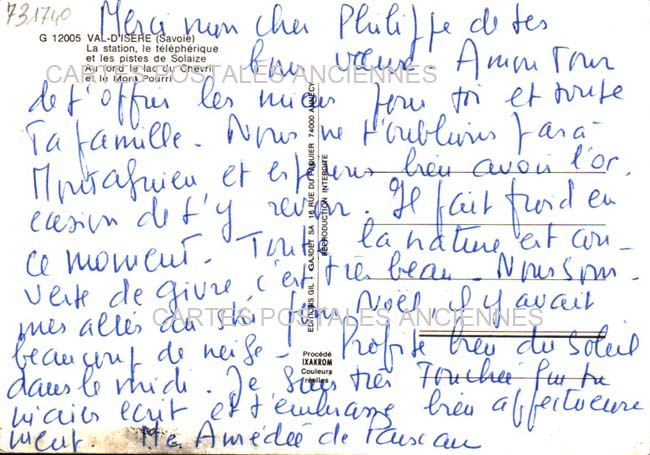 731740
Merci mon cher Philippe de tes
G 12005 VAL-D'ISERE (Savoie)
La station, le téléphérique
et les pistes de Solaize
Au fond le lac du Chevril
et le Mont Pourri
bons voeux. A mon tour
CARTES POSTALES ANCIENNES
de t'offrir les miens pour toi et toute
ta famille. Nous ne t'oublions pas à
et espérons bien avoir l'oc-
casion de t'y revoir. Il fait froid en
ce moment. Toute la nature est cou-
verte de givre, c'est très beau. Nous som-
mes allés au ski pour Noël, il y avait
CARTES POSTALES ANCIENNES
beaucoup de neige. Profite bien du soleil
dans le midi. Je suis très touchée que tu
m'aies écrit et t'embrasse bien affectueuse
ment. Amédée de
EDITIONS GIL GARDET SA 16 RUE DU PAQUIER 74000 ANNECY
REPRODUCTION INTERDITE
Procédé
IXAKROM
Couleurs
réelles